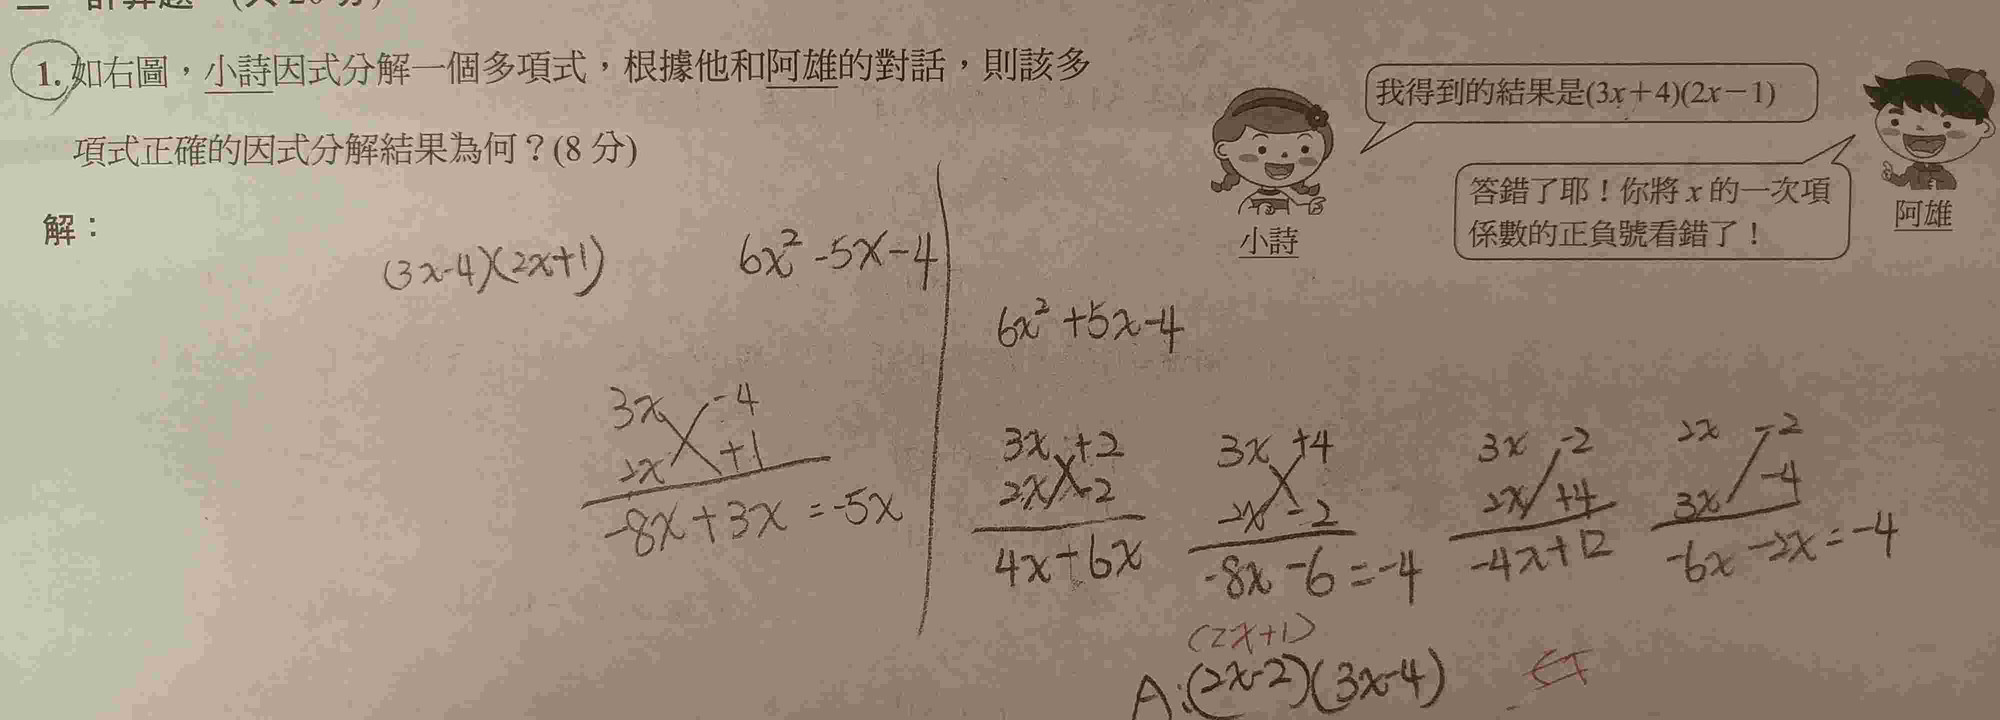 1. 如右圖，小詩因式分解一個多項式，根據他和阿雄的對話，則該多
項式正確的因式分解結果為何？(8 分)
我得到的結果是(3x＋4)(2x－1)
答錯了耶！你將 x 的一次項
係數的正負號看錯了！
小詩
阿雄
解：
(3x-4)(2x+1)
6x²-5x-4
3x -4
2x +1
-8x+3x=-5x
6x²+5x-4
3x +2
2x -2
4x-6x
3x +4
2x -2
-8x-6=-4
3x -2
2x +4
-4x+12
2x -2
3x -4
-6x-2x=-4
(2x+1)
A:(2x-2)(3x-4)